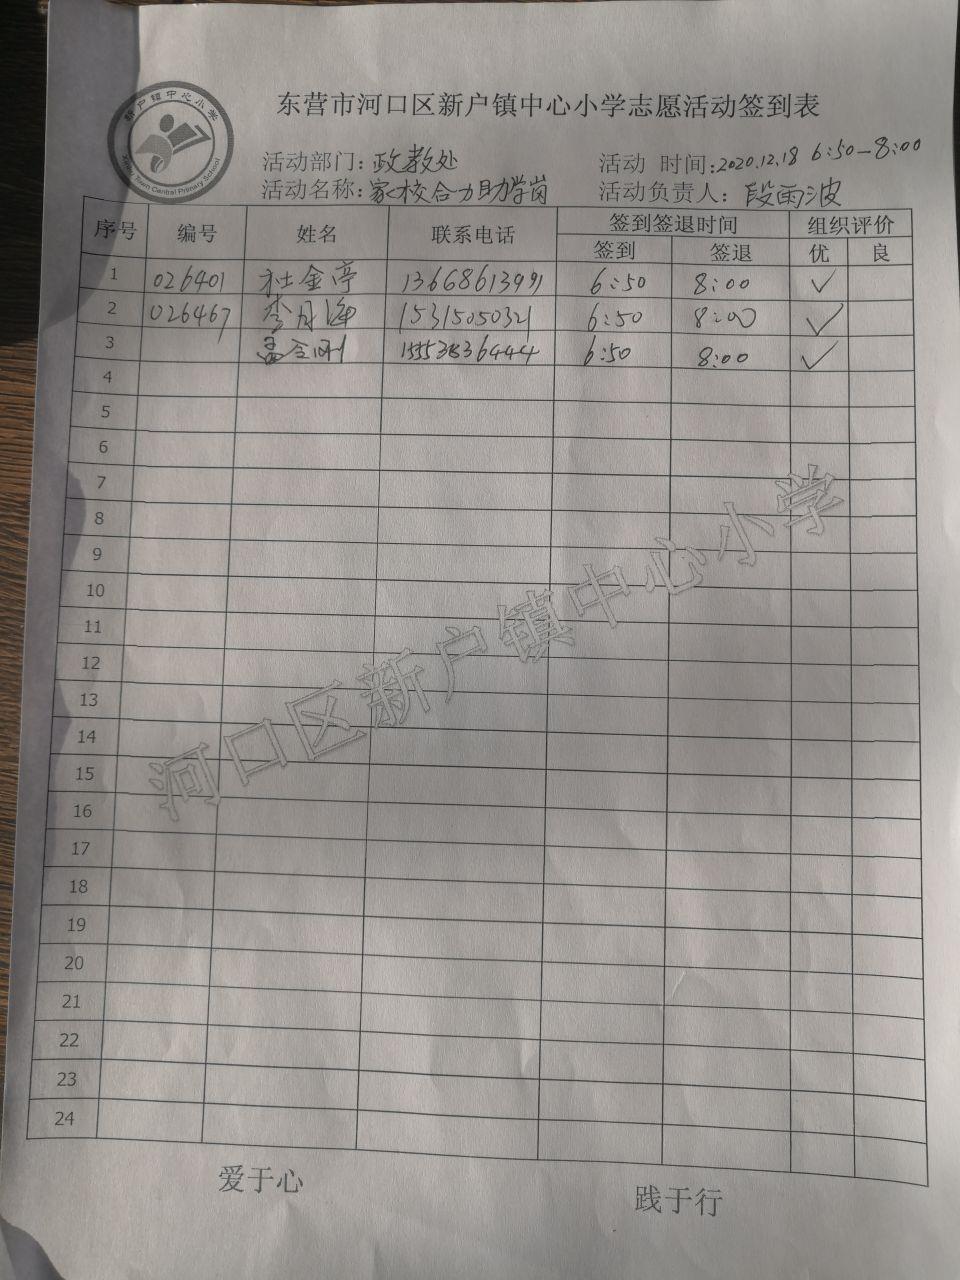 新户镇中心小学
Xinhu Town Central Primary School
东营市河口区新户镇中心小学志愿活动签到表
活动部门：政教处 活动 时间：2020.12.18 6:50—8:00
活动名称：家校合力助学岗 活动负责人：段雨波
序号 编号 姓名 联系电话 签到签退时间 组织评价
签到 签退 优 良
1 026401 杜金亭 13668613991 6:50 8:00 ✓
2 026467 李月海 15315050321 6:50 8:00 ✓
3 孟令刚 6:50 8:00 ✓
4
5
6
7
8
9
10
11
12
13
14
15
16
17
18
19
20
21
22
23
24
河口区新户镇中心小学
爱于心 践于行